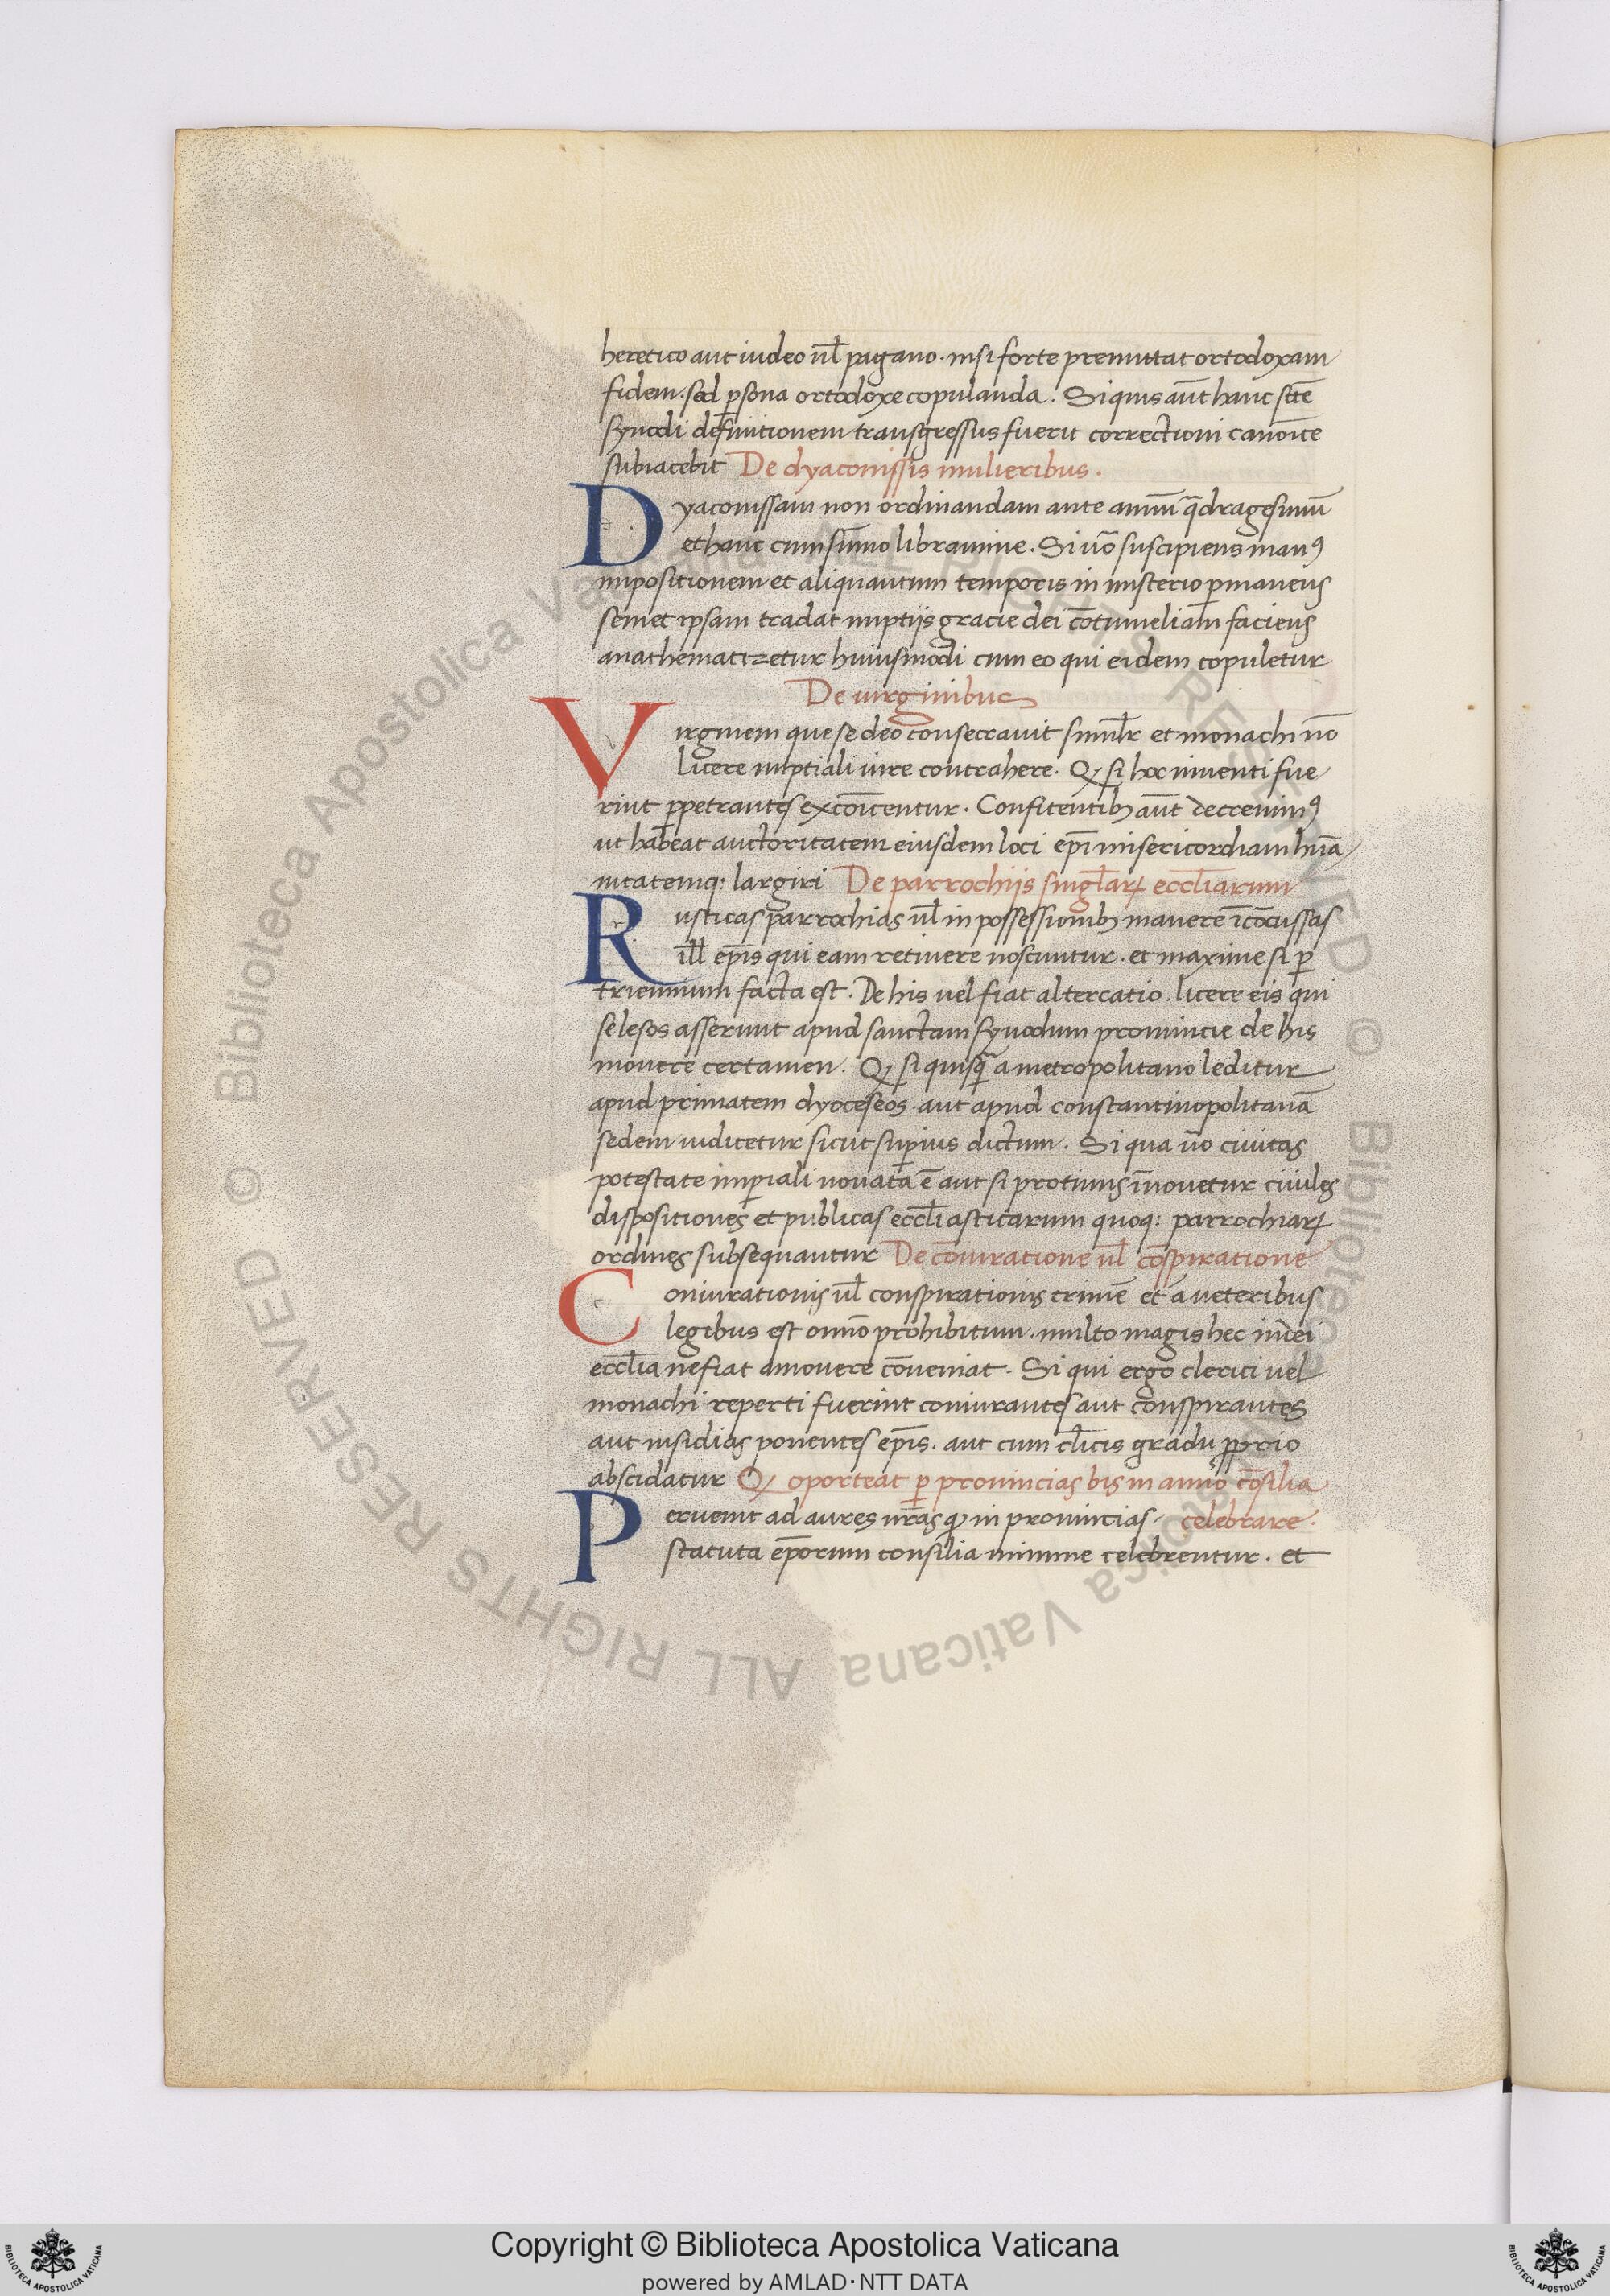 heretico aut iudeo ul̅ pagano. nisi forte premittat ortodoxam
fidem. sed p̱sona ortodoxe copulanda. Siquis aut̅ hanc sc̅e
synodi definitionem transgressus fuerit correctioni canonice
subiacebit De dyaconissis mulieribus.
Dyaconissam non ordinandam ante annu̅ q̅dragesimu̅
et hanc cum su̅mo libramine. Si uo̅ suscipiens manꝰ
impositionem et aliquantum temporis in misterio ꝑmanens
semet ipsam tradat nuptijs gracie dei co̅tumeliam faciens
anathematizetur huiusmodi cum eo qui eidem copuletur
De uirginibus
Virginem que se deo consecrauit simil̅r et monachi no̅
licere nuptiali iure contrahere. Qꝫ si hoc inuenti fue
rint ꝑpetrantes exco̅icentur. Confitentibꝫ aut̅ decreuimꝰ
ut habeat auctoritatem eiusdem loci ep̅i misericordiam huma̅
nitatemq: largiri De parrochijs singl̅arꝝ eccl̅iarum
Rusticas parrochias ul̅ in possessionibꝫ manere i̅co̅cussas
ill̅ ep̅is qui eam retinere noscuntur. et maxime si ꝑ
triennium facta est. De his uel fiat altercatio. licere eis qui
se lesos asserunt apud sanctam synodum prouincie de his
mouere certamen. Qꝫ si quisq̅ a metropolitano leditur
apud primatem dyoceseos. aut apud constantinopolitana̅
sedem iudicetur sicut suꝑius dictum. Si qua uo̅ ciuitas
potestate imꝑiali nouata e̅ aut si protinus i̅nouetur ciuiles
dispositiones et publicas eccl̅iasticarum quoq: parrochiarꝝ
ordines subsequantur De co̅iuratione ul̅ co̅spiratione
Coniurationis ul̅ conspirationis crime̅ et a ueteribus
legibus est omo̅ prohibitum. multo magis hec in dei
eccl̅ia ne fiat amouere co̅ueniat. Si qui ergo clerici uel
monachi reperti fuerint coniurantes aut conspirantes
aut insidias ponentes ep̅is. aut cum cl̅icis gradu ꝓprio
abscidatur Qꝫ oporteat ꝑ prouincias bis in anno co̅silia
Peruenit ad aures nr̅as qꝫ in prouincias celebrare.
statuta ep̅orum consilia minime celebrentur. et
© Biblioteca Apostolica Vaticana ALL RIGHTS RESERVED © Biblioteca Apostolica Vaticana ALL RIGHTS RESERVED
Copyright © Biblioteca Apostolica Vaticana
powered by AMLAD・NTT DATA
BIBLIOTECA APOSTOLICA VATICANA
BIBLIOTECA APOSTOLICA VATICANA